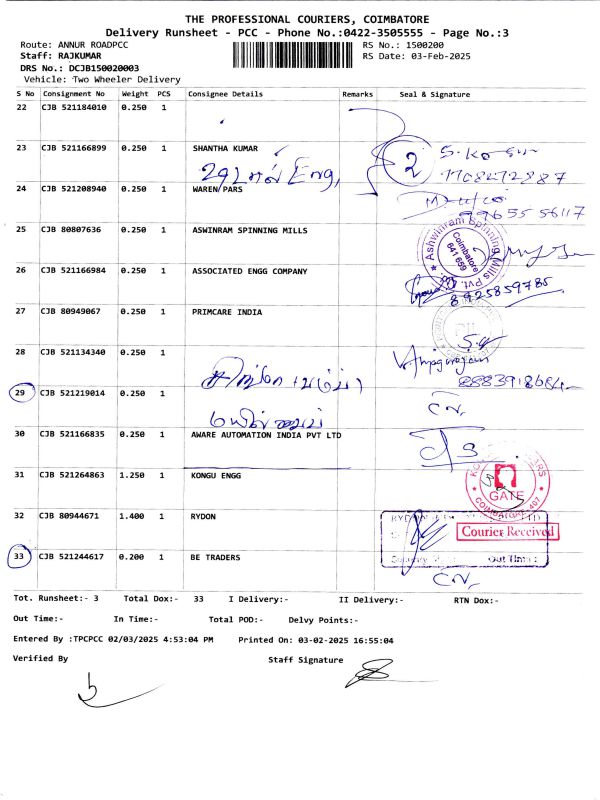 THE PROFESSIONAL COURIERS, COIMBATORE
Delivery Runsheet - PCC - Phone No.:0422-3505555 - Page No.:3
Route: ANNUR ROADPCC RS No.: 1500200
Staff: RAJKUMAR RS Date: 03-Feb-2025
DRS No.: DCJB150020003
Vehicle: Two Wheeler Delivery
S No Consignment No Weight PCS Consignee Details Remarks Seal & Signature
22 CJB 521184010 0.250 1
23 CJB 521166899 0.250 1 SHANTHA KUMAR
2
24 CJB 521208940 0.250 1 WAREN/PARS
99655 56117
25 CJB 80807636 0.250 1 ASWINRAM SPINNING MILLS
Ashwinram Spinning Mills Pvt.
Coimbatore
641 659
26 CJB 521166984 0.250 1 ASSOCIATED ENGG COMPANY
8925859785
27 CJB 80949067 0.250 1 PRIMCARE INDIA
28 CJB 521134340 0.250 1
29 CJB 521219014 0.250 1
CN,
30 CJB 521166835 0.250 1 AWARE AUTOMATION INDIA PVT LTD
31 CJB 521264863 1.250 1 KONGU ENGG
GATE
32 CJB 80944671 1.400 1 RYDON
Courier Received
Out Time:
33 CJB 521244617 0.200 1 BE TRADERS
CN,
Tot. Runsheet:- 3 Total Dox:- 33 I Delivery:- II Delivery:- RTN Dox:-
Out Time:- In Time:- Total POD:- Delvy Points:-
Entered By :TPCPCC 02/03/2025 4:53:04 PM Printed On: 03-02-2025 16:55:04
Verified By Staff Signature